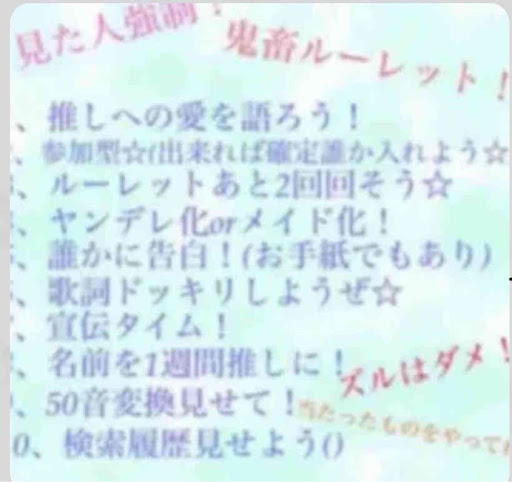 見た人強制!
鬼畜ルーレット!
、推しへの愛を語ろう!
、参加型☆(出来れば確定誰か入れよう☆
、ルーレットあと2回回そう☆
、ヤンデレ化orメイド化!
、誰かに告白!(お手紙でもあり)
、歌詞ドッキリしようぜ☆
、宣伝タイム!
、名前を1週間推しに!
ズルはダメ!
、50音変換見せて!
当たったものをやって
0、検索履歴見せよう()